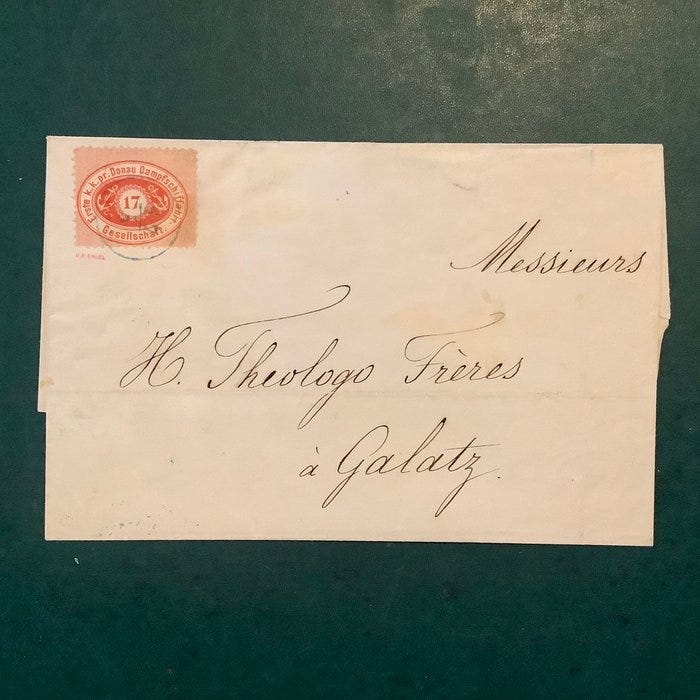 Erste k.k.pr. Donau Dampfschiffahrt-
Gesellschaft.
17
Messieurs
H. Theologo Frères
à Galatz.